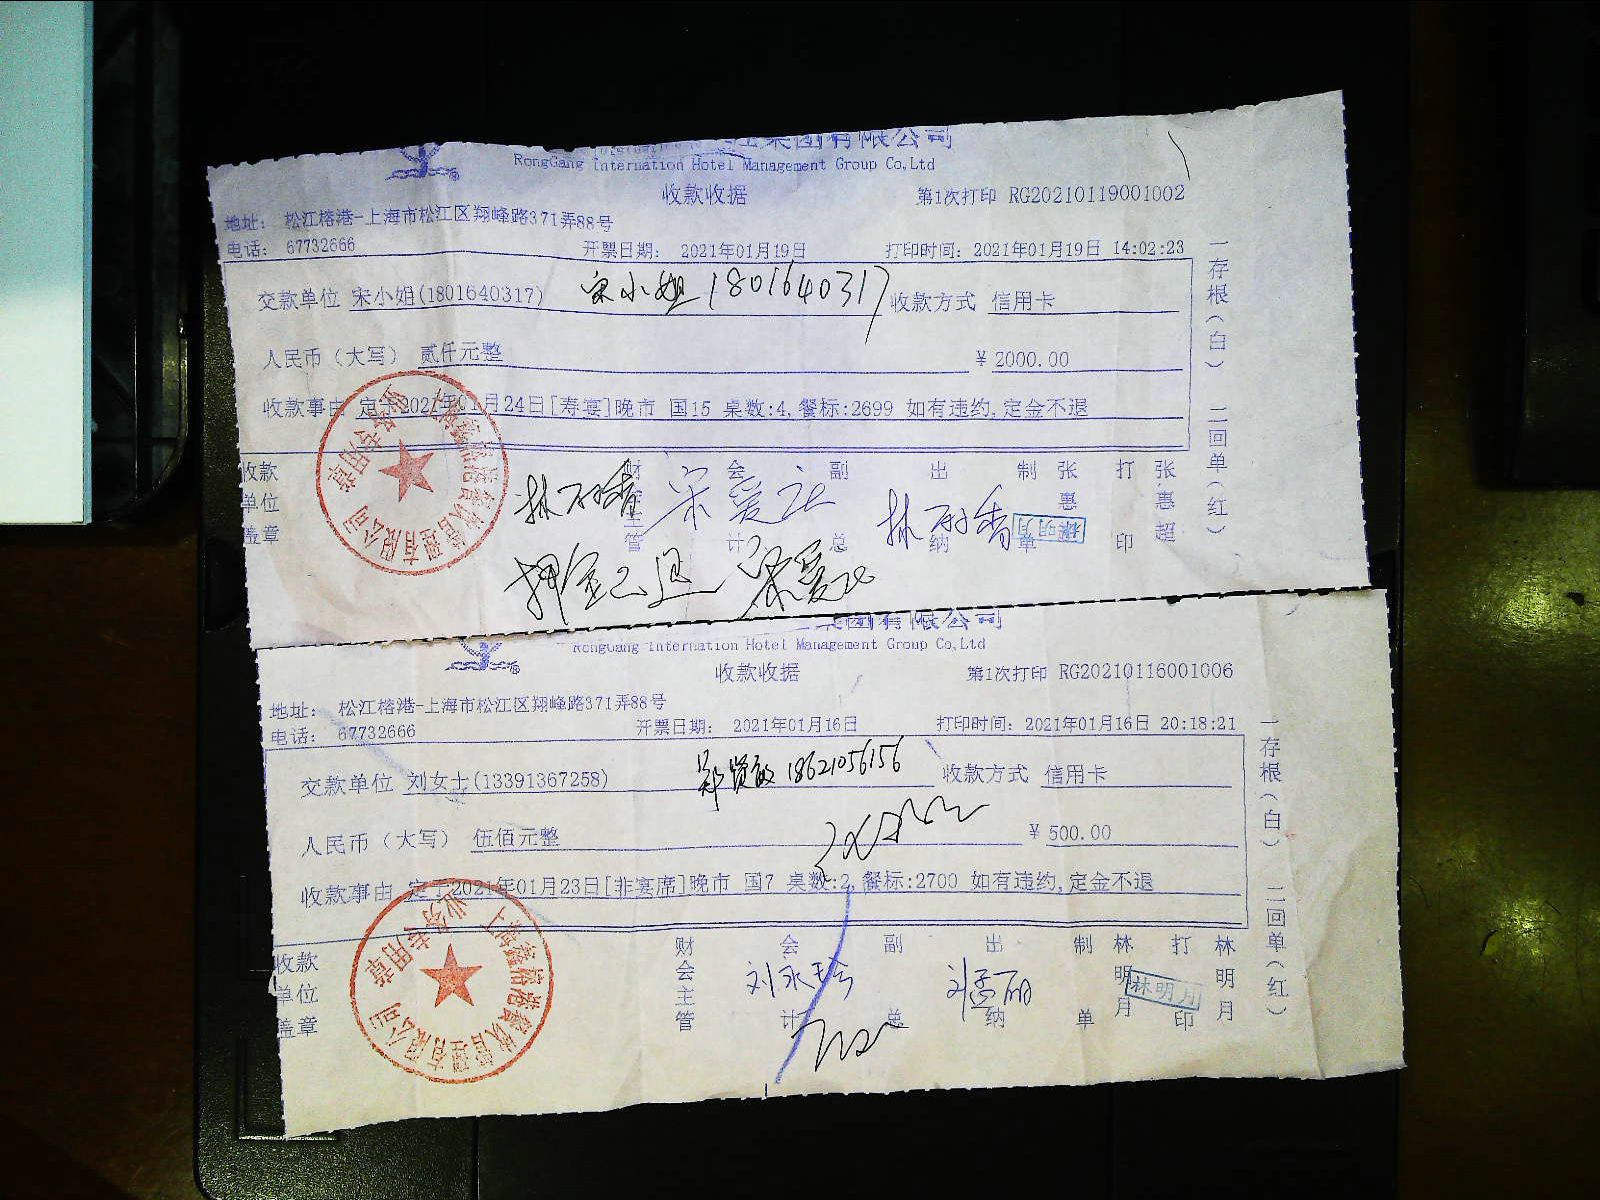 集团有限公司
RongGang Internation Hotel Management Group Co,Ltd
收款收据
第1次打印 RG20210119001002
地址： 松江榕港-上海市松江区翔峰路371弄88号
电话： 67732666 开票日期： 2021年01月19日 打印时间：2021年01月19日 14:02:23
交款单位 宋小姐(1801640317) 宋小姐 1801640317 收款方式 信用卡
人民币（大写） 贰仟元整 ￥ 2000.00
收款事由 定于2021年01月24日[寿宴]晚市 国15 桌数:4,餐标:2699 如有违约,定金不退
一存根(白) 二回单(红)
收款单位盖章 财会主管 会计 副总 出纳 制单 张惠超 打印 张惠超
林明月
押金已退
集团有限公司
RongGang Internation Hotel Management Group Co,Ltd
收款收据
第1次打印 RG20210116001006
地址： 松江榕港-上海市松江区翔峰路371弄88号
电话： 67732666 开票日期： 2021年01月16日 打印时间：2021年01月16日 20:18:21
交款单位 刘女士(13391367258) 18621056156 收款方式 信用卡
人民币（大写） 伍佰元整 ￥ 500.00
收款事由 定于2021年01月23日[非宴席]晚市 国7 桌数:2,餐标:2700 如有违约,定金不退
一存根(白) 二回单(红)
收款单位盖章 财会主管 会计 副总 出纳 刘孟丽 制单 林明月 打印 林明月
林明月